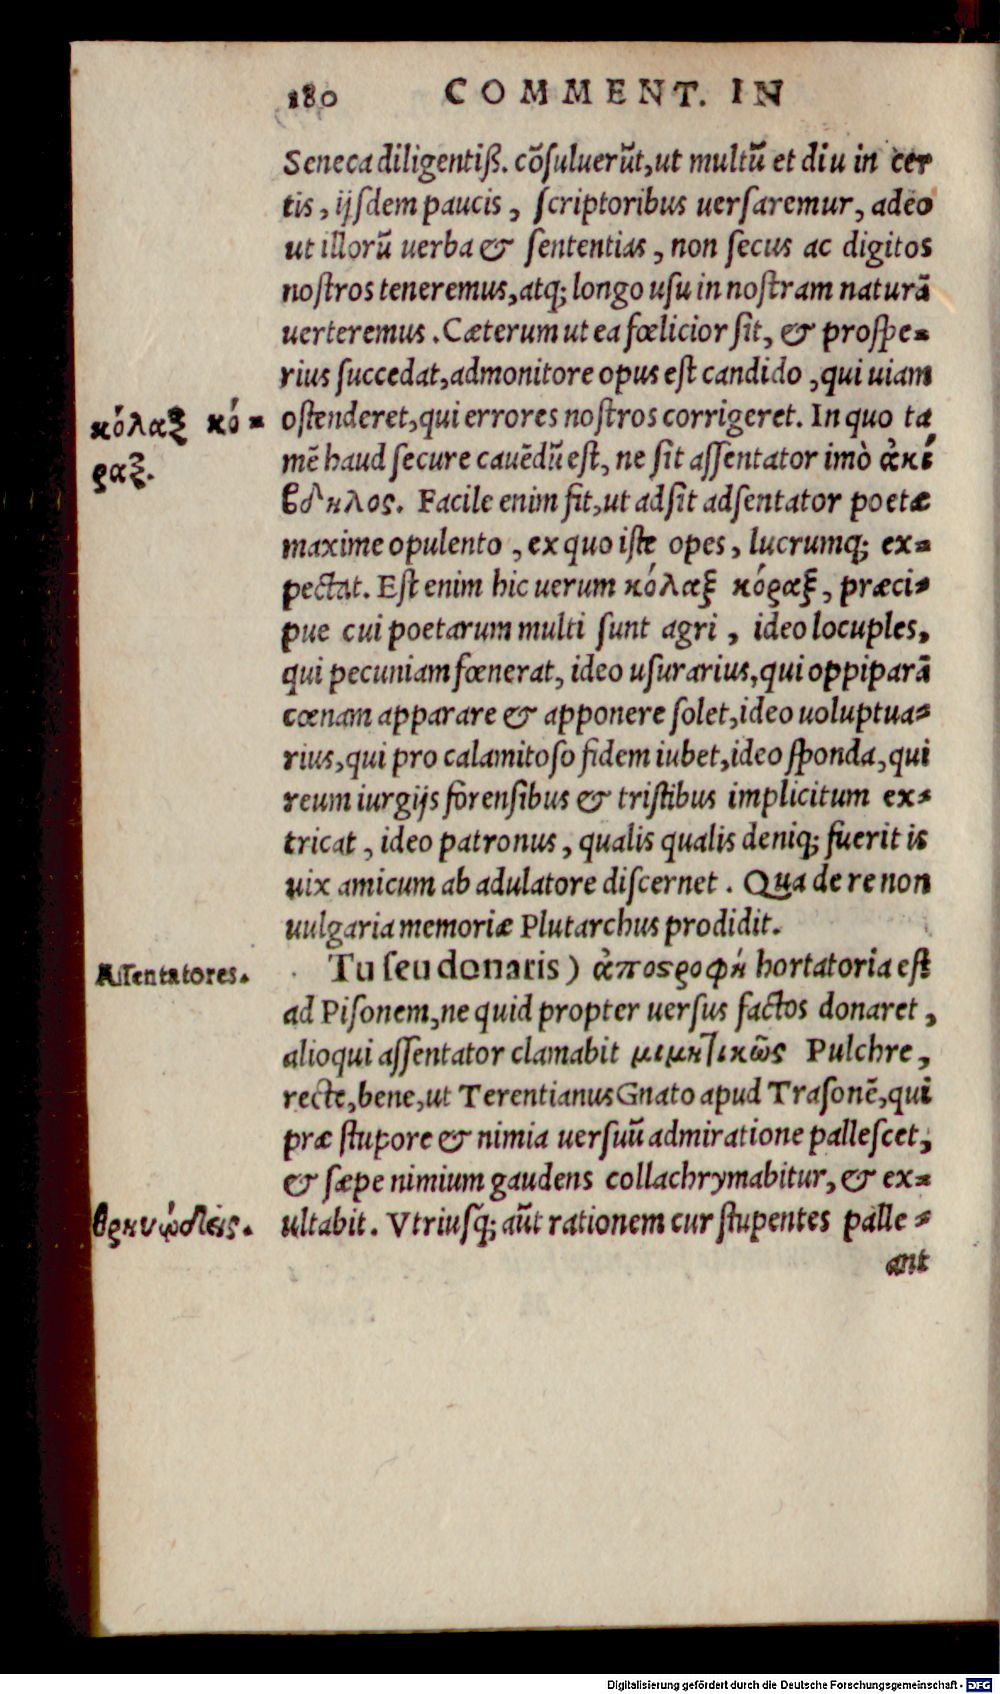 180 COMMENT. IN
Seneca diligentiß. cõſuluerũt, ut multũ et diu in cer
tis, ijſdem paucis, ſcriptoribus uerſaremur, adeo
ut illorũ uerba & ſententias, non ſecus ac digitos
noſtros teneremus, atq; longo uſu in noſtram naturã
uerteremus. Cæterum ut ea fœlicior ſit, & proſpe=
rius ſuccedat, admonitore opus eſt candido, qui uiam
κόλαξ κό=
ραξ.
oſtenderet, qui errores noſtros corrigeret. In quo ta
mẽ haud ſecure cauẽdũ eſt, ne ſit aſſentator imò ἀκί
βδηλος. Facile enim fit, ut adſit adſentator poetæ
maxime opulento, ex quo iſte opes, lucrumq; ex=
pectat. Eſt enim hic uerum κόλαξ κόραξ, præci=
pue cui poetarum multi ſunt agri, ideo locuples,
qui pecuniam fœnerat, ideo uſurarius, qui oppiparã
cœnam apparare & apponere ſolet, ideo uoluptua=
rius, qui pro calamitoſo fidem iubet, ideo ſponda, qui
reum iurgijs forenſibus & triſtibus implicitum ex=
tricat, ideo patronus, qualis qualis deniq; fuerit is
uix amicum ab adulatore diſcernet. Qua de re non
uulgaria memoriæ Plutarchus prodidit.
Aſſentatores.
Tu ſeu donaris) ἀποςροφὴ hortatoria eſt
ad Piſonem, ne quid propter uerſus factos donaret,
alioqui aſſentator clamabit μιμητικῶς Pulchre,
recte, bene, ut Terentianus Gnato apud Traſonẽ, qui
præ ſtupore & nimia uerſuũ admiratione palleſcet,
& ſæpe nimium gaudens collachrymabitur, & ex=
θρηνῳδεῖς.
ultabit. Vtriuſq; aũt rationem cur ſtupentes palle=
ant
Digitalisierung gefördert durch die Deutsche Forschungsgemeinschaft - DFG